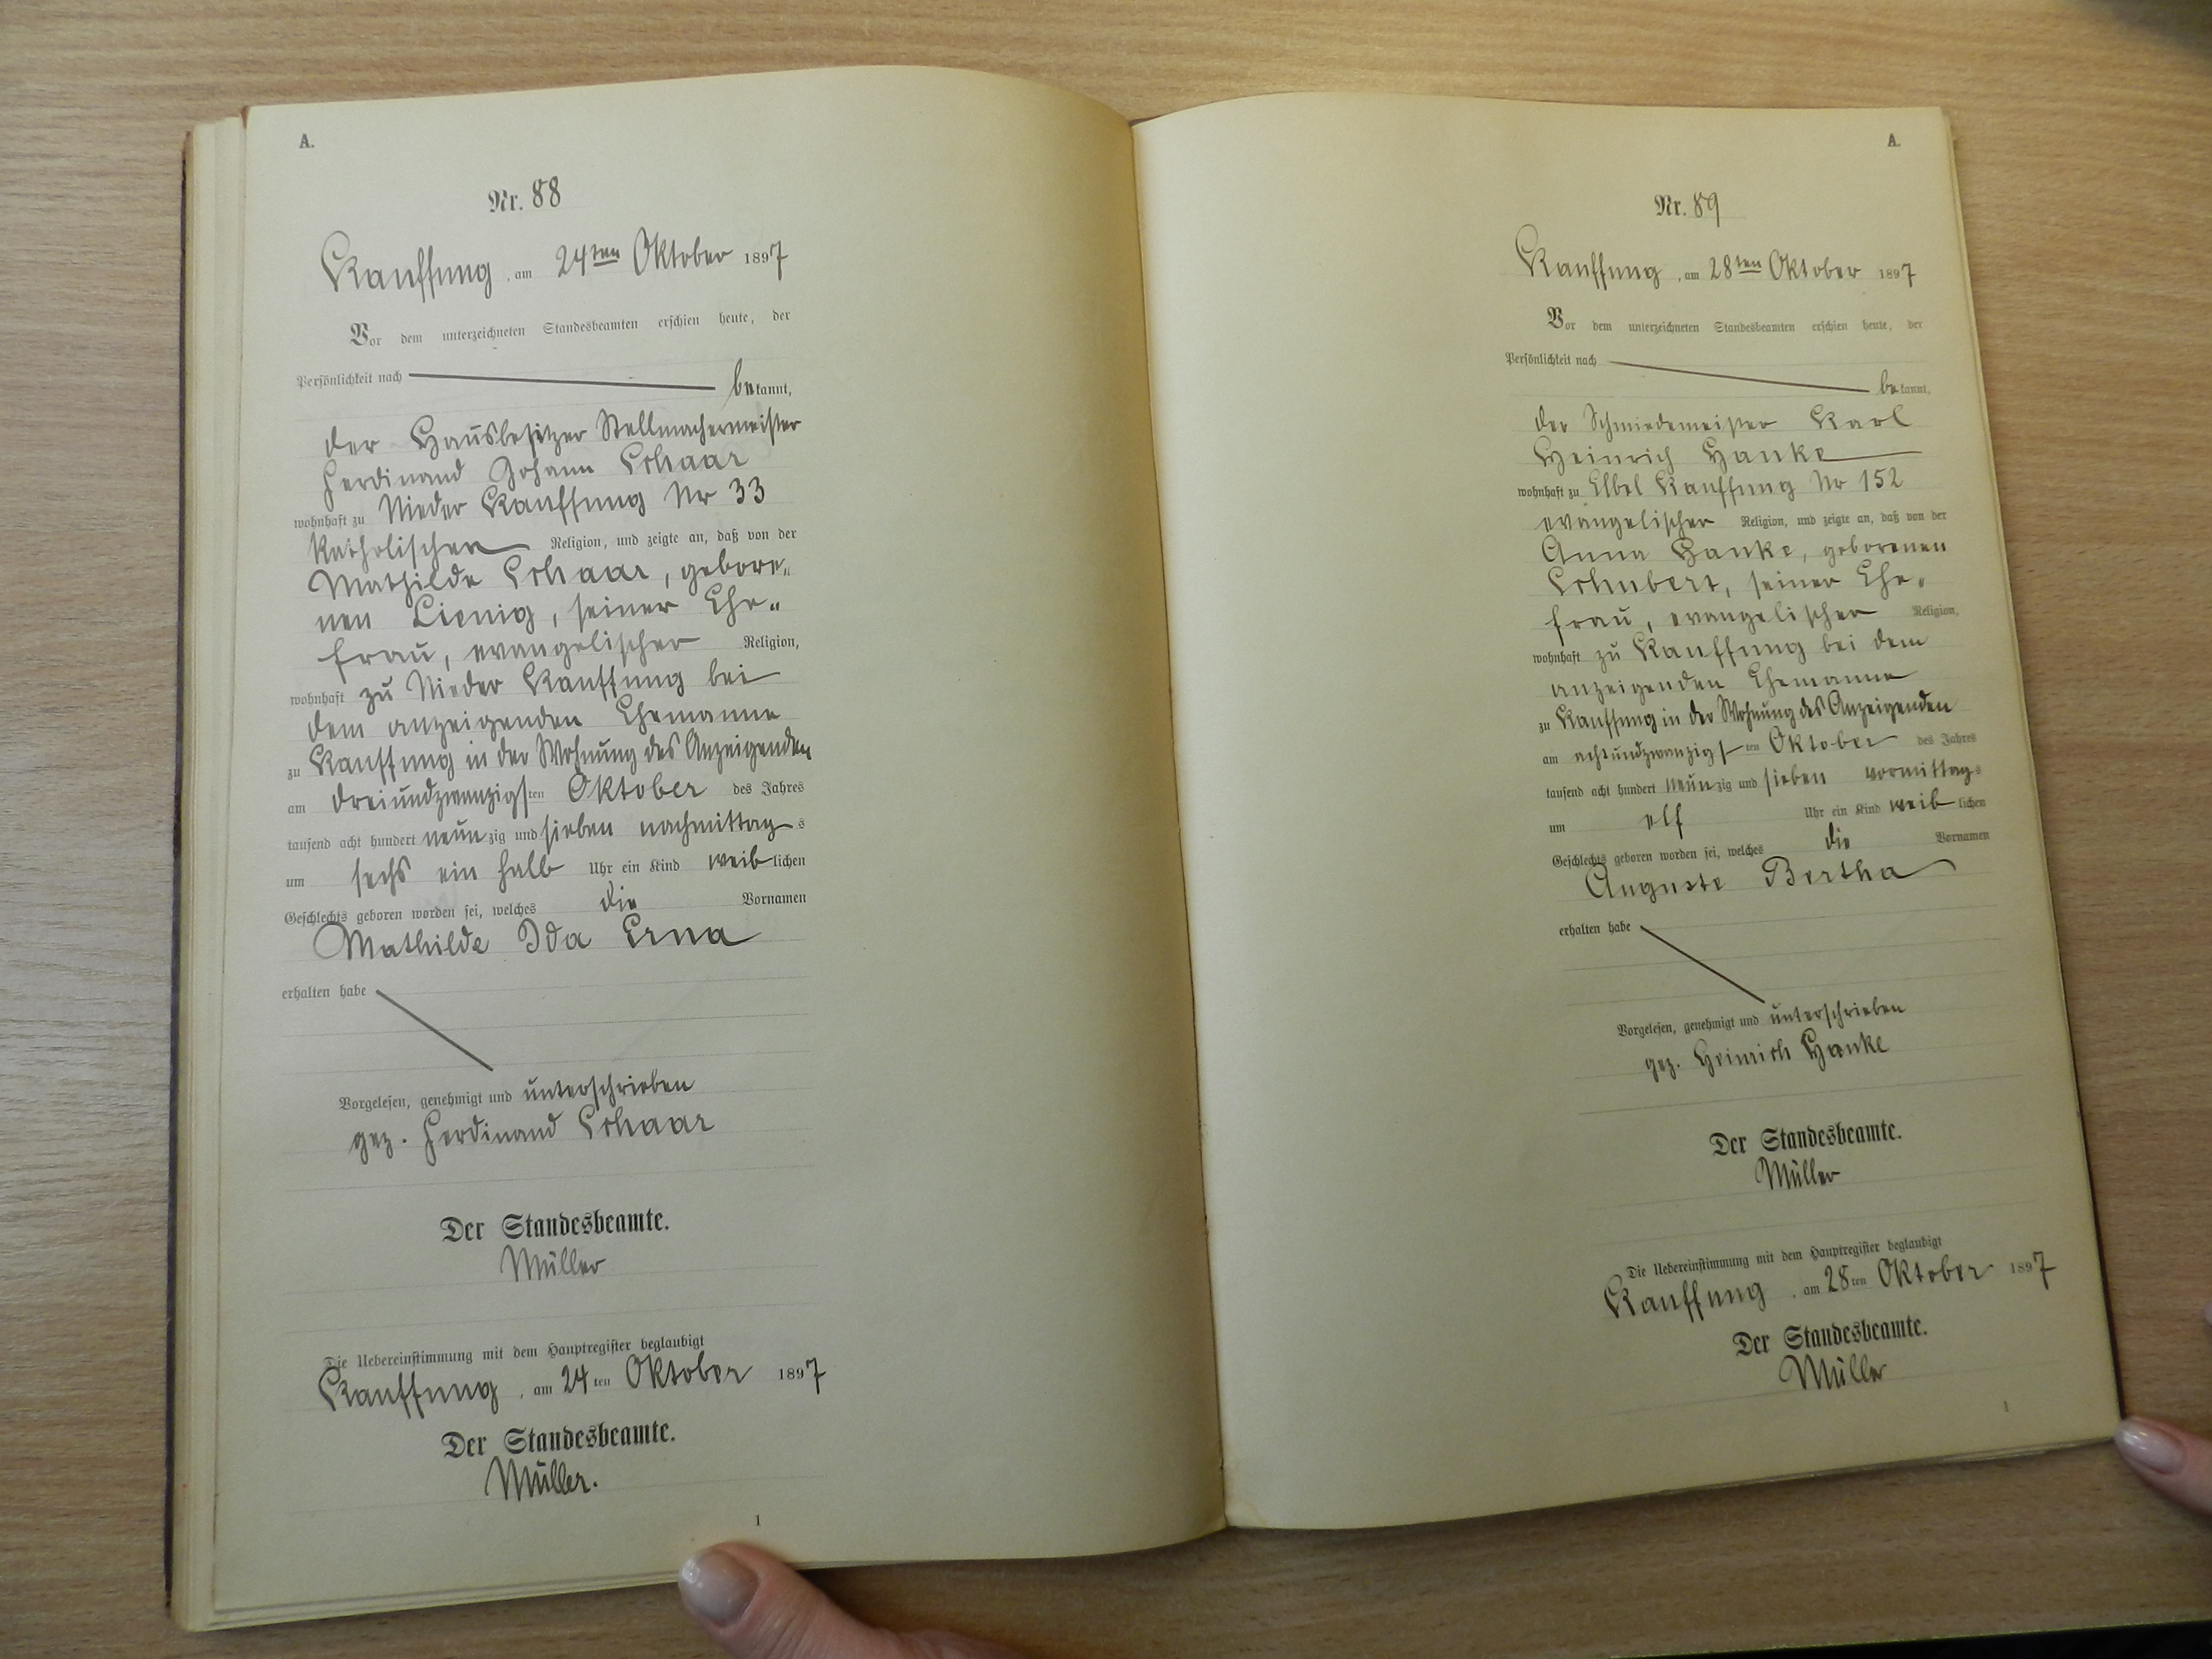 A.
Nr. 88
Kauffung, am 24ten Oktober 1897
Vor dem unterzeichneten Standesbeamten erschien heute, der
Persönlichkeit nach
bekannt,
der Hausbesitzer Stellmachermeister
Ferdinand Johann Schaar
wohnhaft zu Nieder Kauffung Nr 33
katholischer Religion, und zeigte an, daß von der
Mathilde Schaar, gebore„
nen Lienig, seiner Ehe„
frau, evangelischer Religion,
wohnhaft zu Nieder Kauffung bei
dem anzeigenden Ehemanne
zu Kauffung in der Wohnung des Anzeigenden
am dreiundzwanzigsten Oktober des Jahres
tausend acht hundert neunzig und sieben nachmittags
um sechs ein halb Uhr ein Kind weiblichen
Geschlechts geboren worden sei, welches die Vornamen
Mathilde Ida Erna
erhalten habe
Vorgelesen, genehmigt und unterschrieben
gez. Ferdinand Schaar
Der Standesbeamte.
Müller
Die Uebereinstimmung mit dem Hauptregister beglaubigt
Kauffung, am 24ten Oktober 1897
Der Standesbeamte.
Müller.
1
A.
Nr. 89
Kauffung, am 28ten Oktober 1897
Vor dem unterzeichneten Standesbeamten erschien heute, der
Persönlichkeit nach
bekannt,
der Schmiedemeister Karl
Heinrich Hanke
wohnhaft zu Kauffung Nr 152
evangelischer Religion, und zeigte an, daß von der
Anna Hanke, geborenen
Schubert, seiner Ehe„
frau, evangelischer Religion,
wohnhaft zu Kauffung bei dem
anzeigenden Ehemanne
zu Kauffung in der Wohnung des Anzeigenden
am achtundzwanzigsten Oktober des Jahres
tausend acht hundert neunzig und sieben vormittags
um elf Uhr ein Kind weiblichen
Geschlechts geboren worden sei, welches die Vornamen
Auguste Bertha
erhalten habe
Vorgelesen, genehmigt und unterschrieben
gez. Heinrich Hanke
Der Standesbeamte.
Müller
Die Uebereinstimmung mit dem Hauptregister beglaubigt
Kauffung, am 28ten Oktober 1897
Der Standesbeamte.
Müller
1